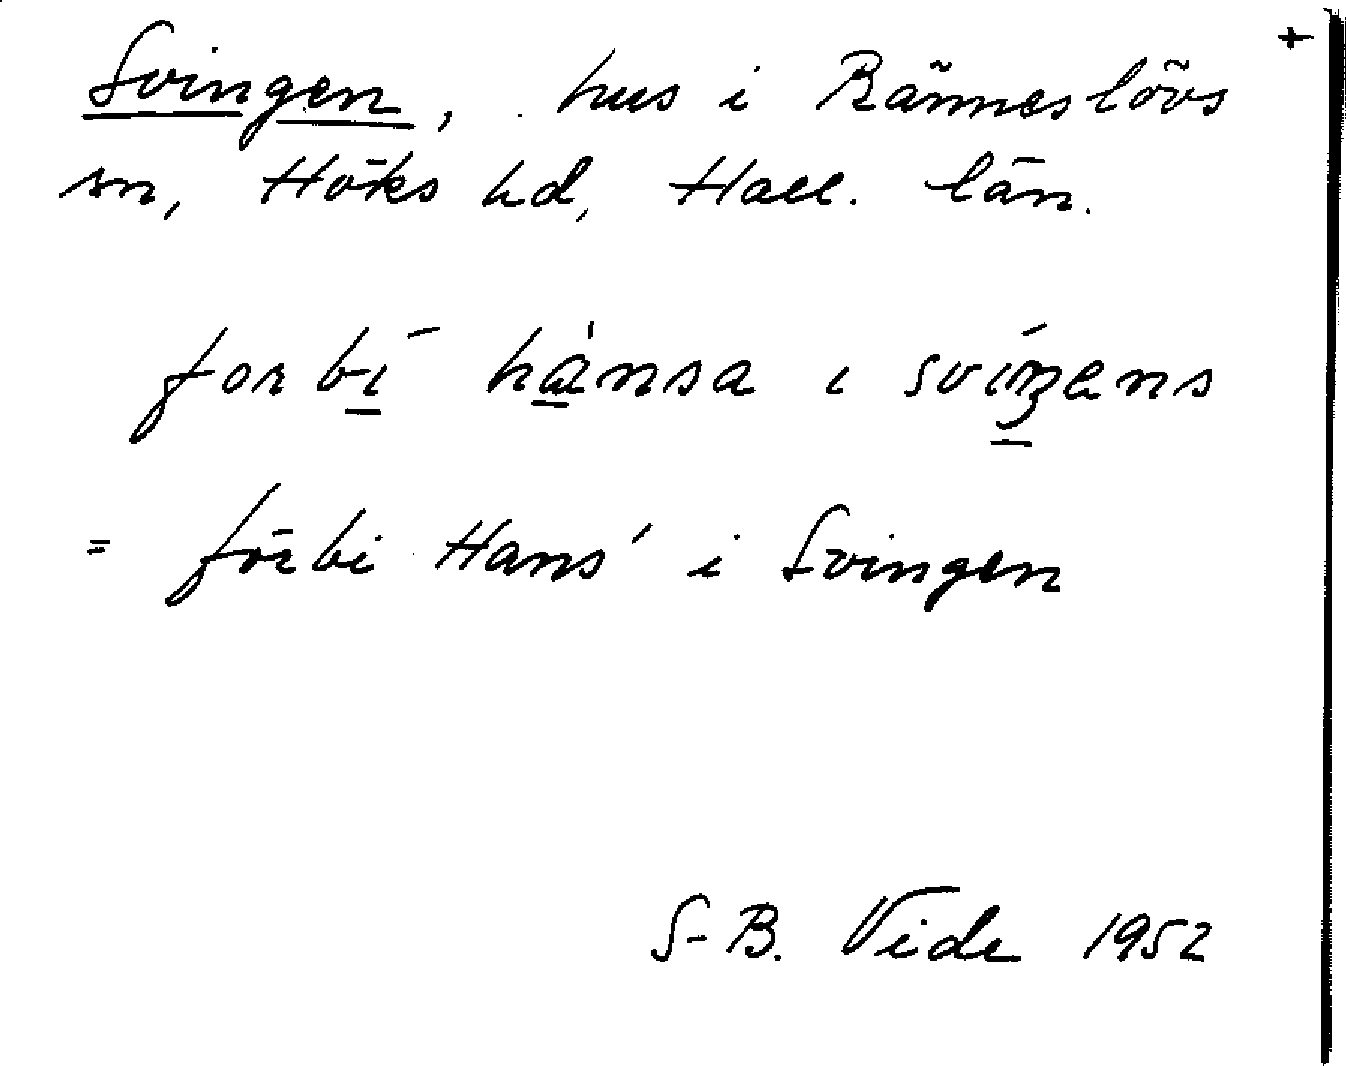 +
Svingen, hus i Ränneslövs
sn, Höks hd, Hall. län.
forbí hànsa i svíŋens
= förbi Hans' i Svingen
S-B. Vide 1952